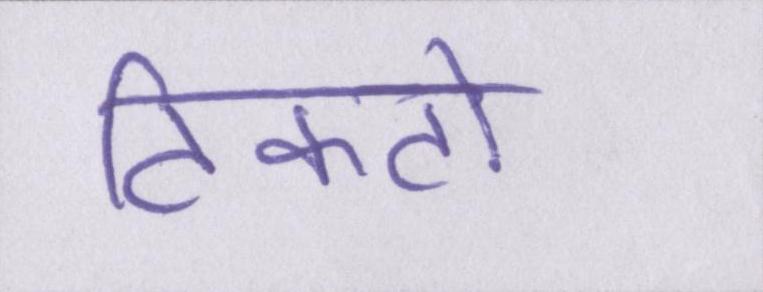 टिकटो